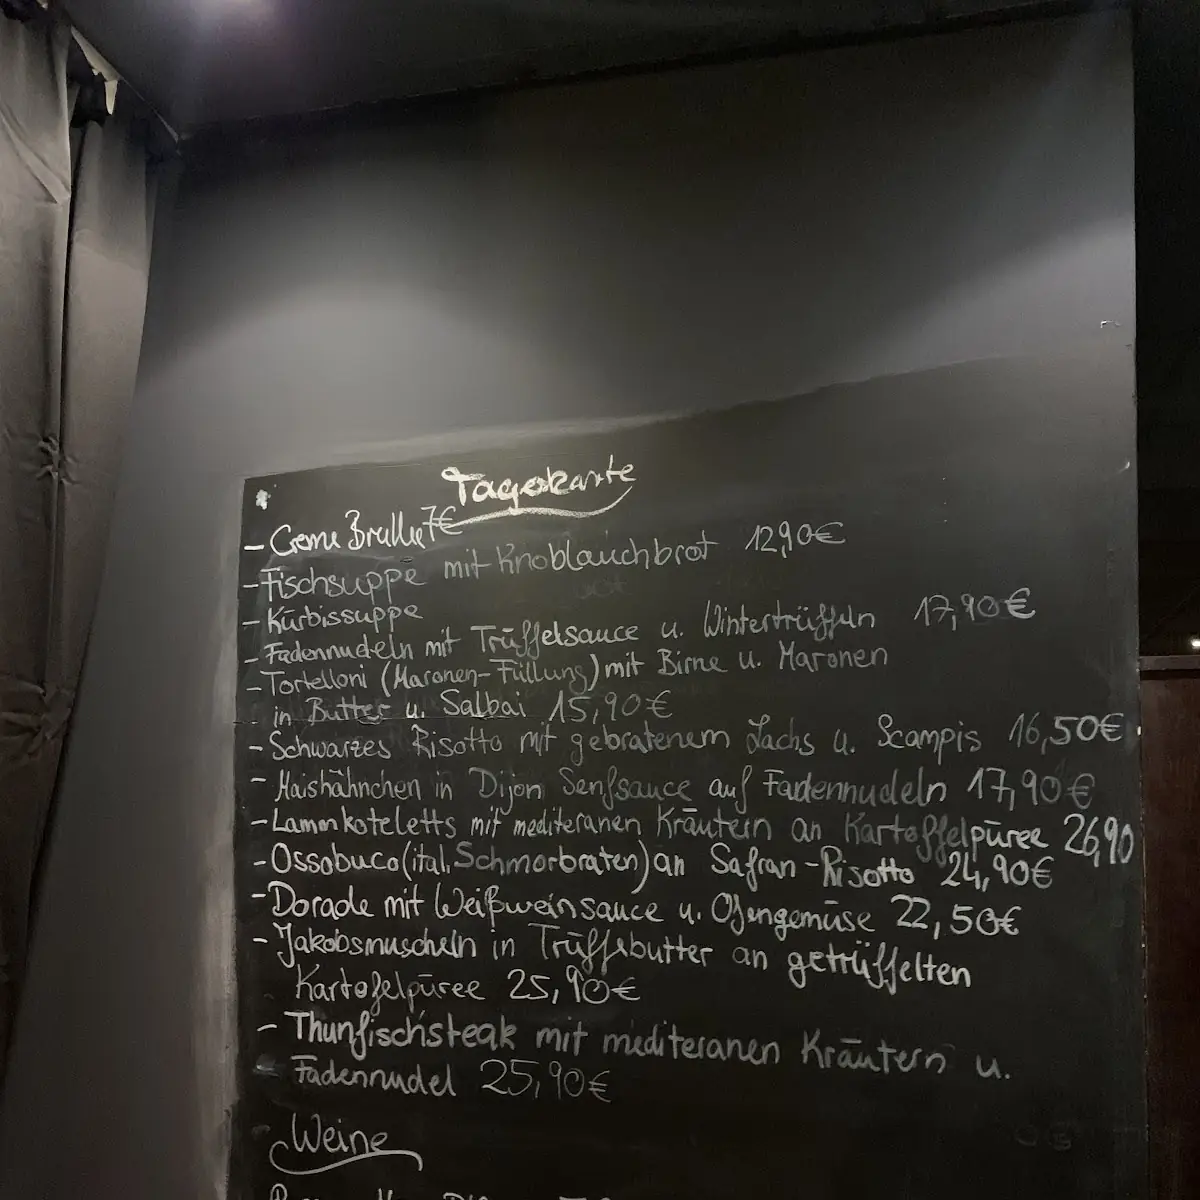 Tageskarte
- Creme Brullee 7€
- Fischsuppe mit Knoblauchbrot 12,90€
- Kürbissuppe
- Fadennudeln mit Trüffelsauce u. Wintertrüffeln 17,90€
- Tortelloni (Maronen-Füllung) mit Birne u. Maronen
in Butter u. Salbai 15,90€
- Schwarzes Risotto mit gebratenem Lachs u. Scampis 16,50€
- Maishähnchen in Dijon Senfsauce auf Fadennudeln 17,90€
- Lammkoteletts mit mediteranen Kräutern an Kartoffelpüree 26,90
- Ossobuco (ital. Schmorbraten) an Safran-Risotto 24,90€
- Dorade mit Weißweinsauce u. Ofengemüse 22,50€
- Jakobsmuscheln in Trüffebutter an getrüffelten
Kartofelpüree 25,90€
- Thunfischsteak mit mediteranen Kräutern u.
Fadennudel 25,90€
Weine